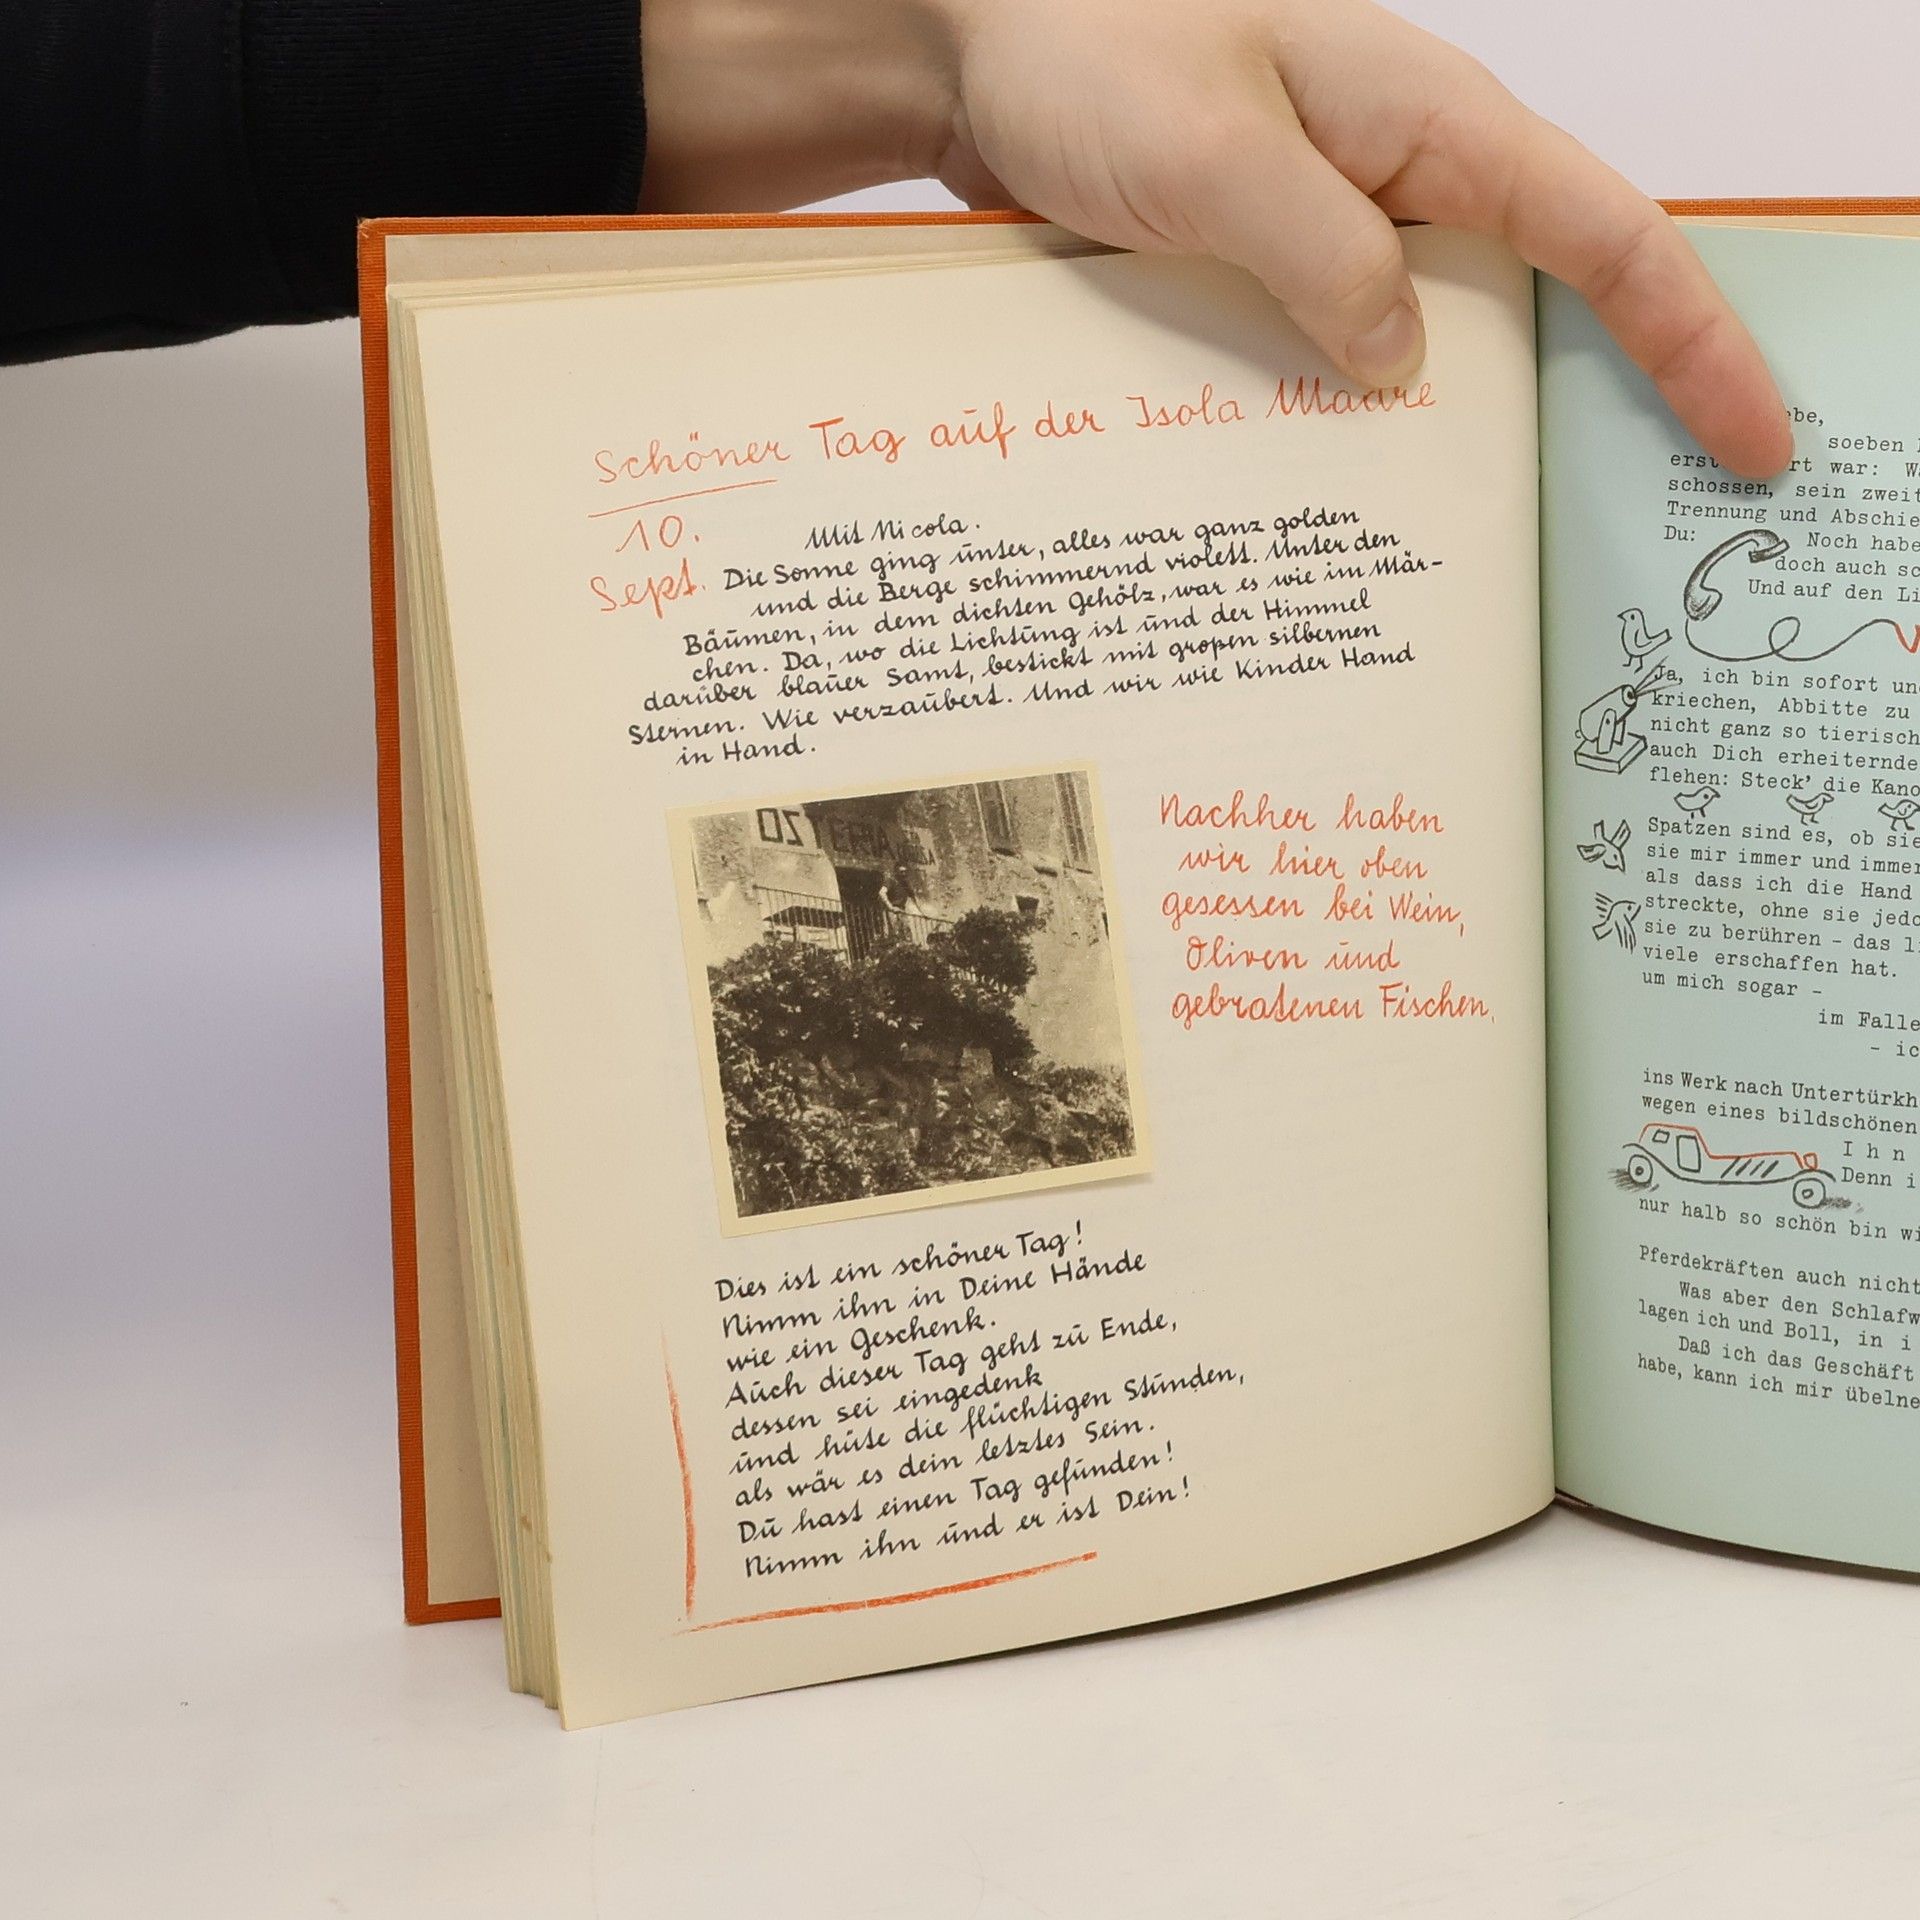 Schöner Tag auf der Isola Madre
10.
Sept.
Mit Nicola.
Die Sonne ging unter, alles war ganz golden
und die Berge schimmernd violett. Unter den
Bäumen, in dem dichten Gehölz, war es wie im Mär-
chen. Da, wo die Lichtung ist und der Himmel
darüber blauer Samt, bestickt mit großen silbernen
Sternen. Wie verzaubert. Und wir wie Kinder Hand
in Hand.
OSTERIA
Nachher haben
wir hier oben
gesessen bei Wein,
Oliven und
gebratenen Fischen.
Dies ist ein schöner Tag!
Nimm ihn in Deine Hände
wie ein Geschenk.
Auch dieser Tag geht zu Ende,
dessen sei eingedenk
und hüte die flüchtigen Stunden,
als wär es dein letztes Sein.
Du hast einen Tag gefunden!
Nimm ihn und er ist Dein!
ebe,
soeben
erst rt war:
schossen, sein zweit
Trennung und Abschie
Du: Noch habe
doch auch sc
Und auf den Li
Ja, ich bin sofort und
kriechen, Abbitte zu
nicht ganz so tierisch
auch Dich erheiternde
flehen: Steck' die Kano
Spatzen sind es, ob sie
sie mir immer und immer
als dass ich die Hand
streckte, ohne sie jedo
sie zu berühren - das li
viele erschaffen hat.
um mich sogar -
im Falle
- ic
ins Werk nach Untertürkh
wegen eines bildschönen
Ihn
Denn i
nur halb so schön bin wi
Pferdekräften auch nicht
Was aber den Schlafw
lagen ich und Boll, in i
Daß ich das Geschäft
habe, kann ich mir übelne